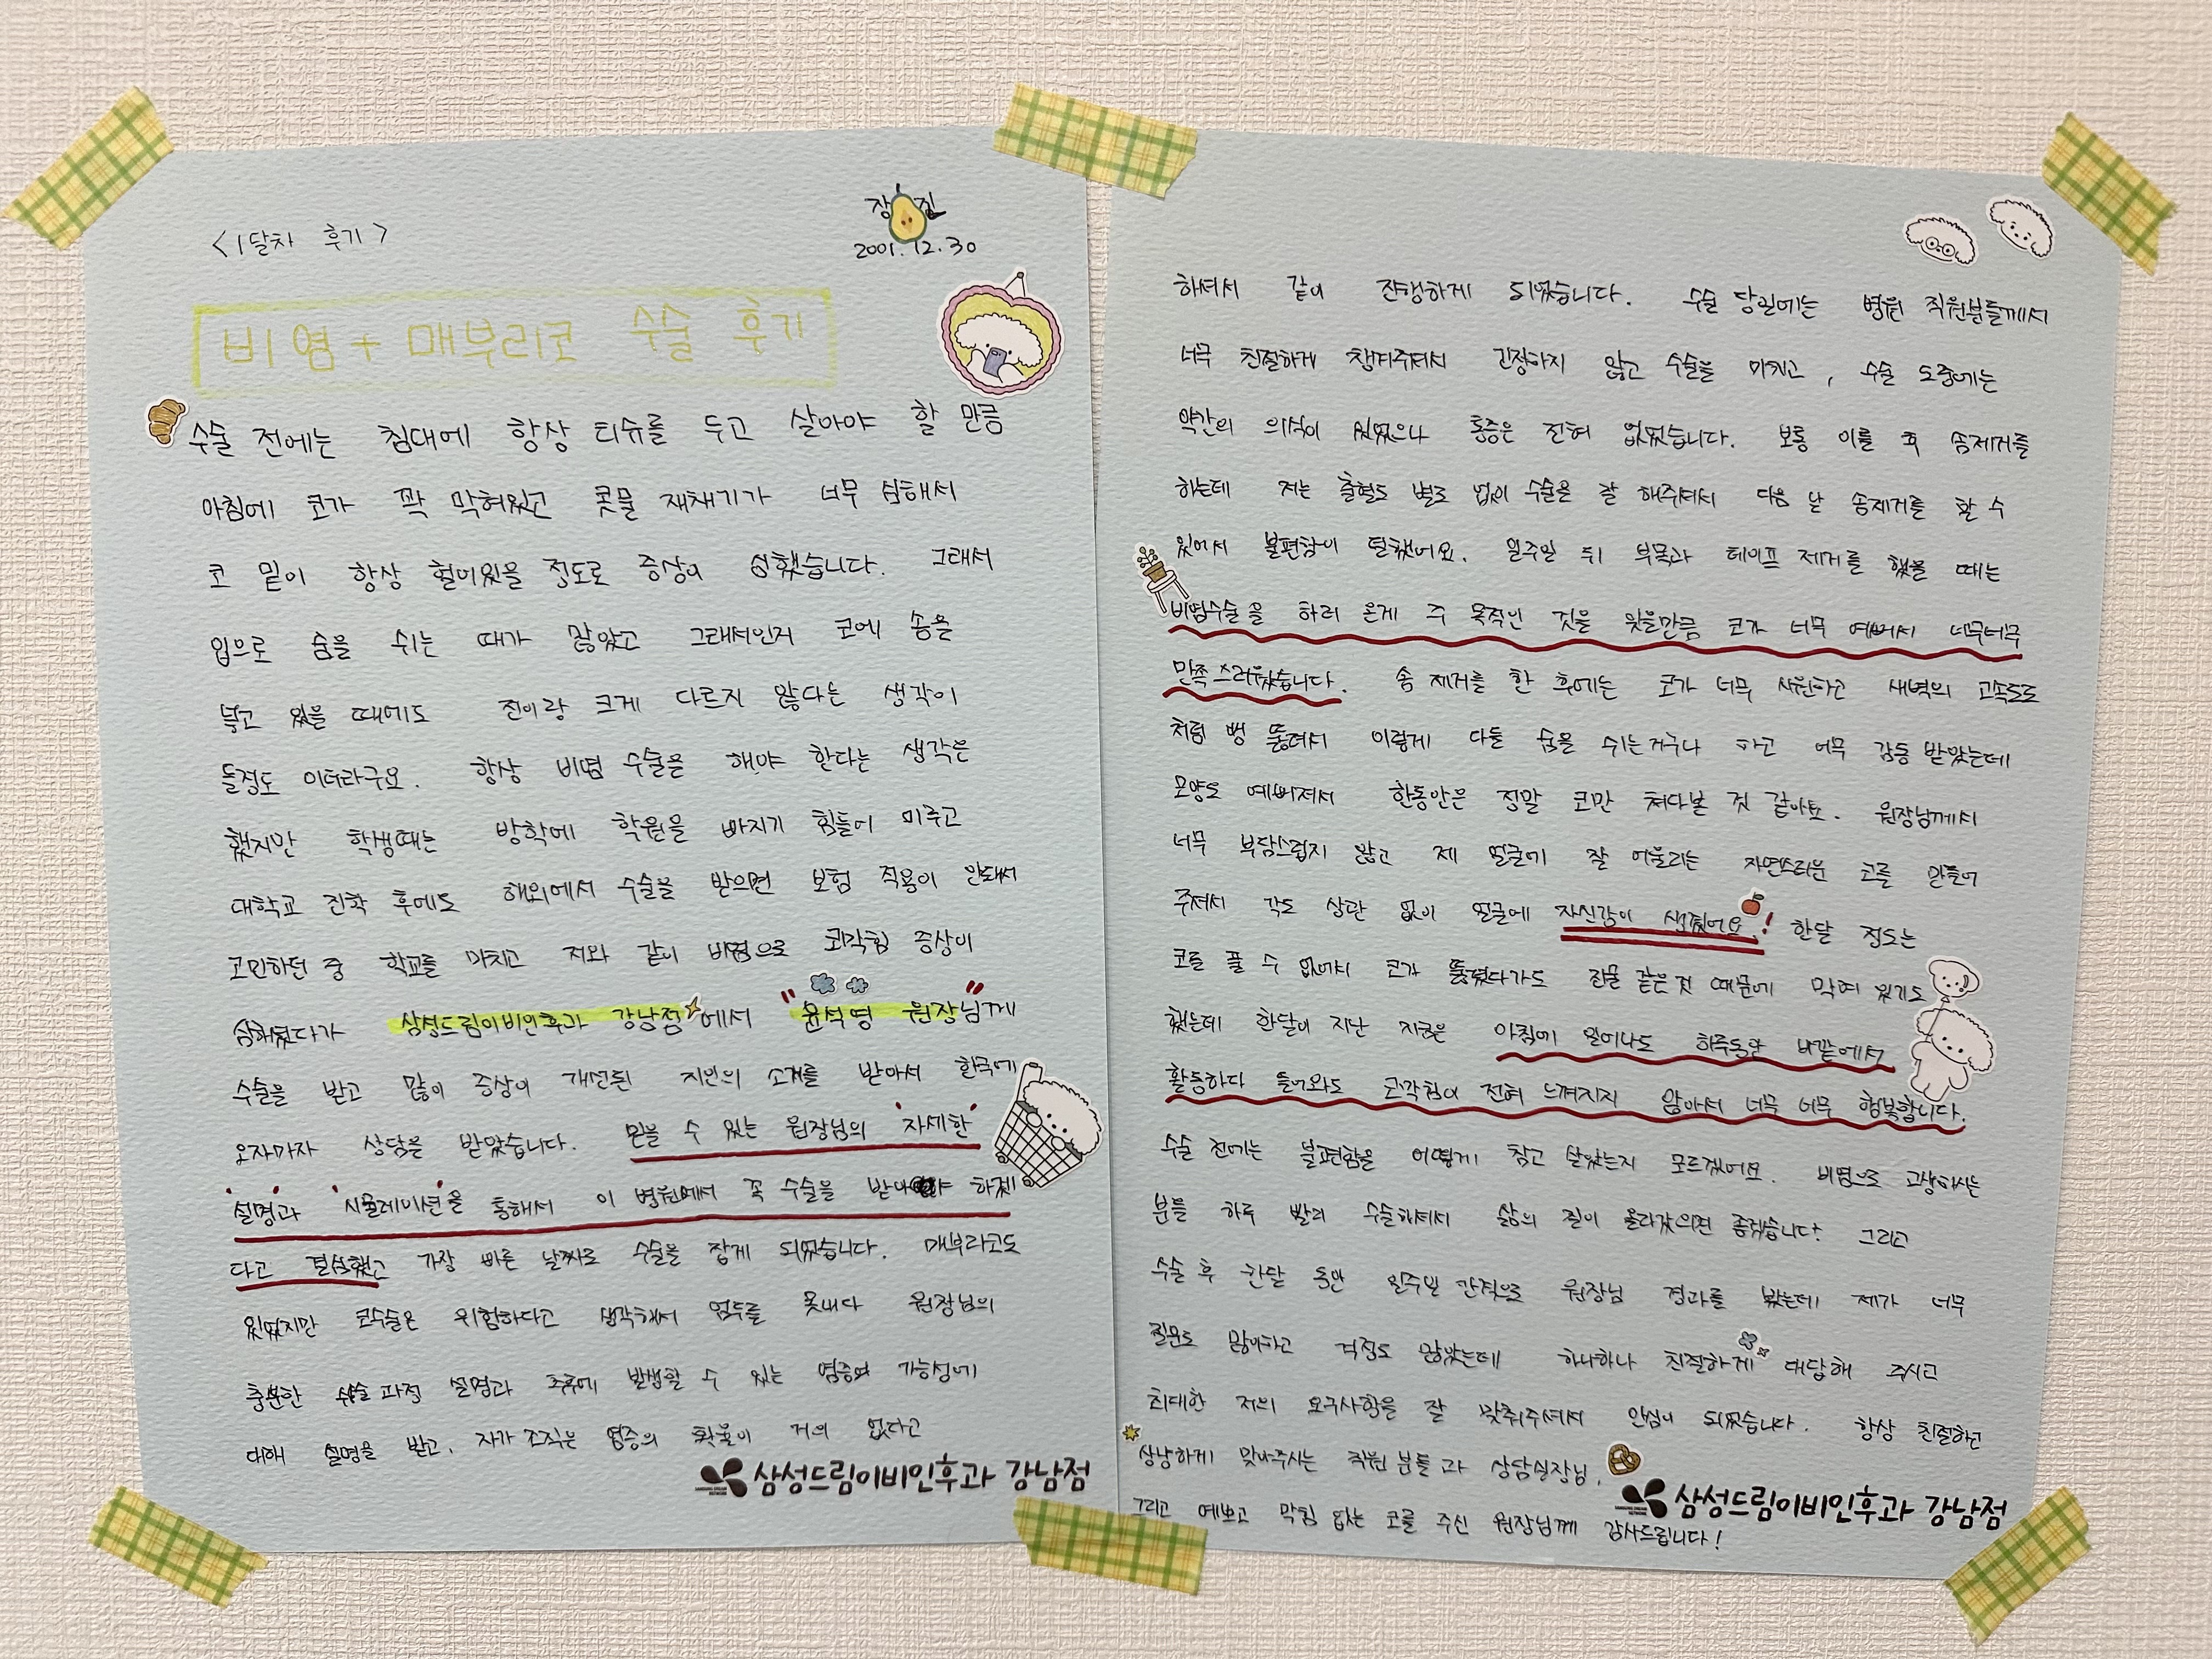 <1달차 후기>
장 진
2001.12.30
비염 + 매부리코 수술 후기
수술 전에는 침대에 항상 티슈를 두고 살아야 할 만큼
아침에 코가 꽉 막혀있고 콧물 재채기가 너무 심해서
코 밑이 항상 헐어있을 정도로 증상이 심했습니다. 그래서
입으로 숨을 쉬는 때가 많았고 그래서인지 코에 솜을
넣고 있을 때에도 전이랑 크게 다르지 않다는 생각이
들정도 이더라구요. 항상 비염 수술을 해야 한다는 생각은
했지만 학생때는 방학에 학원을 빠지기 힘들어 미루고
대학교 진학 후에도 해외에서 수술을 받으면 보험 적용이 안돼서
고민하던 중 학교를 마치고 저와 같이 비염으로 코막힘 증상이
심하였다가 삼성드림이비인후과 강남점에서 "윤석영 원장님"께
수술을 받고 많이 증상이 개선된 지인의 소개를 받아서 한국에
오자마자 상담을 받았습니다. 믿을 수 있는 원장님의 '자세한'
'설명'과 '시뮬레이션'을 통해서 이 병원에서 꼭 수술을 받아야 하겠
다고 결심했고 가장 빠른 날짜로 수술을 잡게 되었습니다. 매부리코도
있었지만 코수술은 위험하다고 생각해서 엄두를 못내다 원장님의
충분한 수술 과정 설명과 추후에 발생할 수 있는 염증의 가능성에
대해 설명을 받고, 자가 조직은 염증의 확률이 거의 없다고
삼성드림이비인후과 강남점
하셔서 같이 진행하게 되었습니다. 수술 당일에는 병원 직원분들께서
너무 친절하게 챙겨주셔서 긴장하지 않고 수술을 마치고, 수술 도중에는
약간의 의식이 있었으나 통증은 전혀 없었습니다. 보통 이틀 후 솜제거를
하는데 저는 출혈도 별로 없이 수술을 잘 해주셔서 다음 날 솜제거를 할 수
있어서 불편함이 덜했어요. 일주일 뒤 부목과 테이프 제거를 했을 때는
비염수술을 하러 온게 주 목적인 것을 잊을만큼 코가 너무 예뻐서 너무너무
만족스러웠습니다. 솜 제거를 한 후에는 코가 너무 시원하고 새벽의 고속도로
처럼 뻥 뚫려서 이렇게 다들 숨을 쉬는거구나 하고 너무 감동 받았는데
모양도 예뻐져서 한동안은 정말 코만 쳐다본 것 같아요. 원장님께서
너무 부담스럽지 않고 제 얼굴에 잘 어울리는 자연스러운 코를 만들어
주셔서 각도 상관 없이 얼굴에 자신감이 생겼어요! 한달 정도는
코를 풀 수 없어서 코가 뚫렸다가도 진물 같은 것 때문에 막혀 있기도
했는데 한달이 지난 지금은 아침에 일어나도 하루동안 바깥에서
활동하다 들어와도 코막힘이 전혀 느껴지지 않아서 너무 너무 행복합니다.
수술 전에는 불편함을 어떻게 참고 살았는지 모르겠어요. 비염으로 고생하시는
분들 하루 빨리 수술하셔서 삶의 질이 올라갔으면 좋겠습니다! 그리고
수술 후 한달 동안 일주일 간격으로 원장님 경과를 봤는데 제가 너무
질문도 많이하고 걱정도 많았는데 하나하나 친절하게 대답해 주시고
최대한 저의 요구사항을 잘 맞춰주셔서 안심이 되었습니다. 항상 친절하고
상냥하게 맞아주시는 직원 분들과 상담실장님,
그리고 예쁘고 막힘 없는 코를 주신 원장님께 감사드립니다!
삼성드림이비인후과 강남점